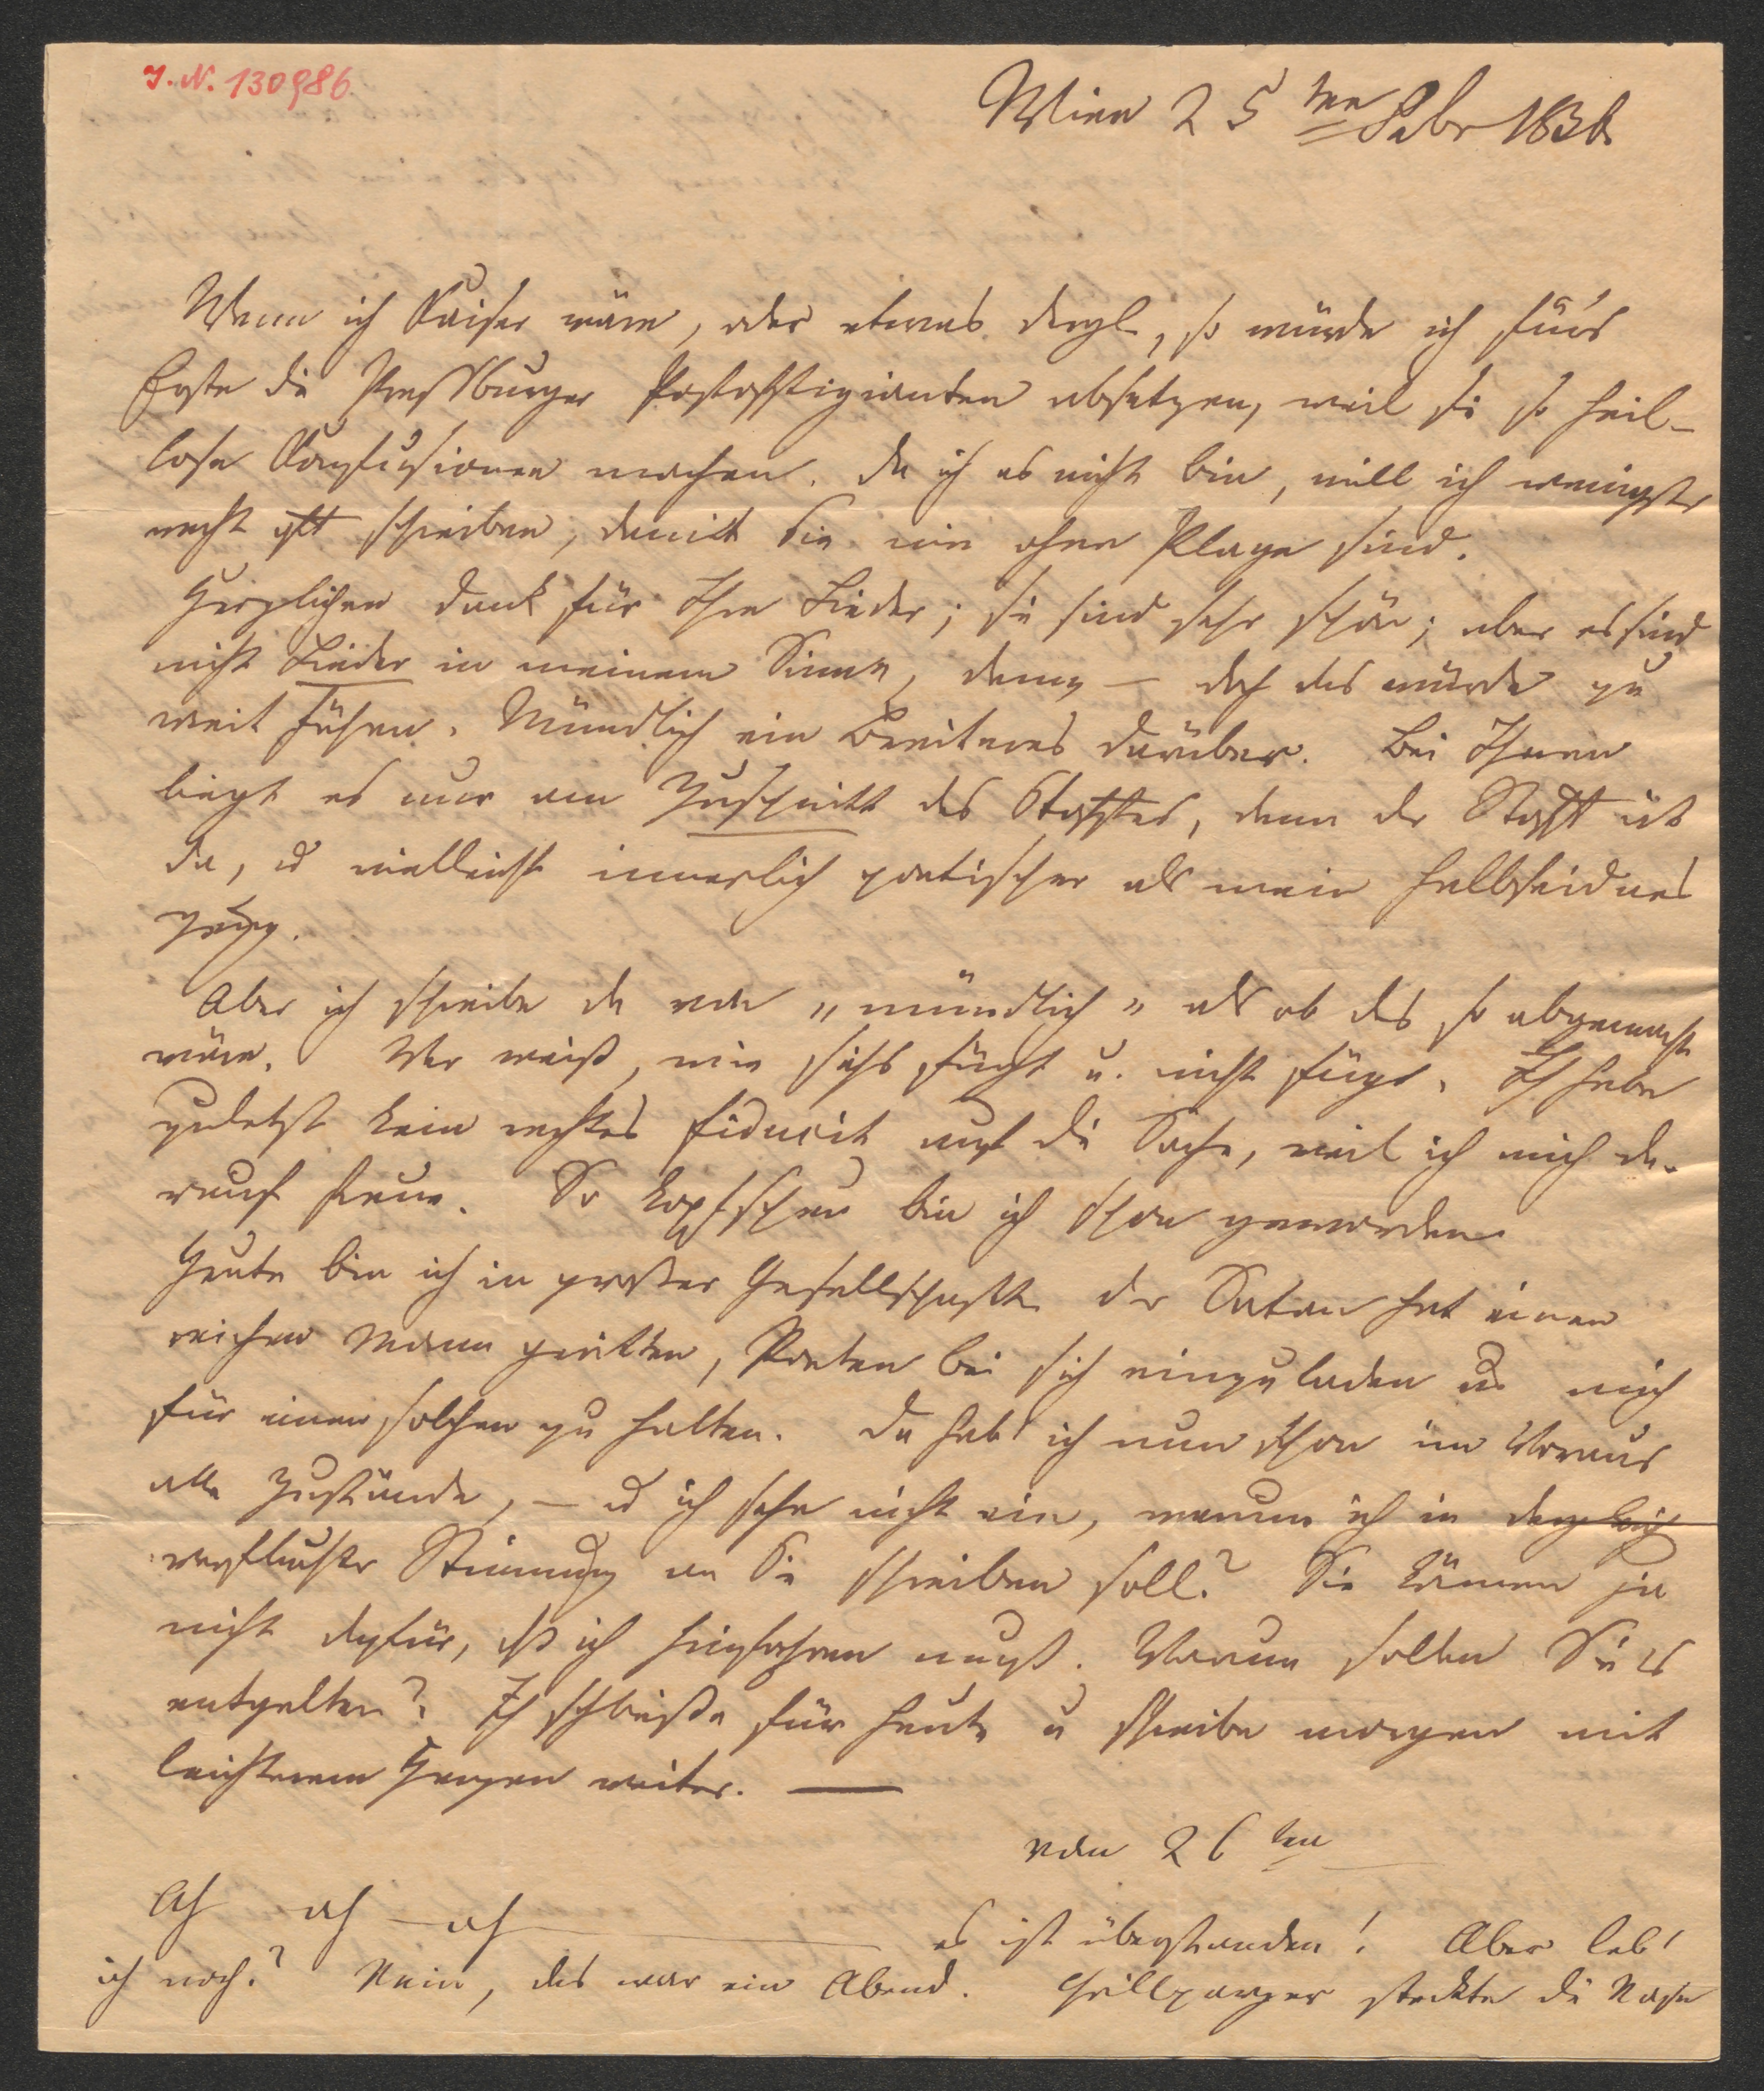 I. N. 130986
Wien 25ten Febr 1836
Wenn ich Kaiser wäre, oder etwas dergl, so würde ich fürs
Erste die Pressburger Postoffizianten absetzen, weil sie so heil-
lose Confusionen machen. Da ich es nicht bin, will ich wenigstens
recht oft schreiben, damit Sie nie ohne Plage sind.
Herzlichen Dank für Ihre Lieder; sie sind sehr schön; aber es sind
nicht Lieder in meinem Sinne, denn — doch das würde zu
weit führen. Mündlich ein Breiteres darüber. Bei Ihnen
liegt es nur am Zuschnitt des Stoffes, denn der Stoff ist
da, u vielleicht innerlich poetischer als mein halbseidnes
Zeug.
Aber ich schreibe da von „mündlich" als ob das so abgemacht
wäre. Wer weiß, wie sichs fügt u. nicht fügt. Ich habe
zuletzt kein rechtes fiducit auf die Sache, weil ich mich da-
rauf freue. So kopfscheu bin ich schon geworden
Heute bin ich in großer Gesellschaft. Der Satan hat einen
reichen Mann geritten, Poeten bei sich einzuladen u mich
für einen solchen zu halten. Da hab' ich nun schon im Voraus
alle Zustände, — u ich sehe nicht ein, warum ich in dergleich
verfluchter Stimmung an Sie schreiben soll? Sie können ja
nicht dafür, daß ich hinfahren muß. Warum sollen Sie es
entgelten? Ich schließe für heute u schreibe morgen mit
leichterem Herzen weiter. —
vom 26ten
Ach — ach — ach — es ist überstanden! Aber leb'
ich noch? Nein, das war ein Abend. Grillparzer steckte die Nase